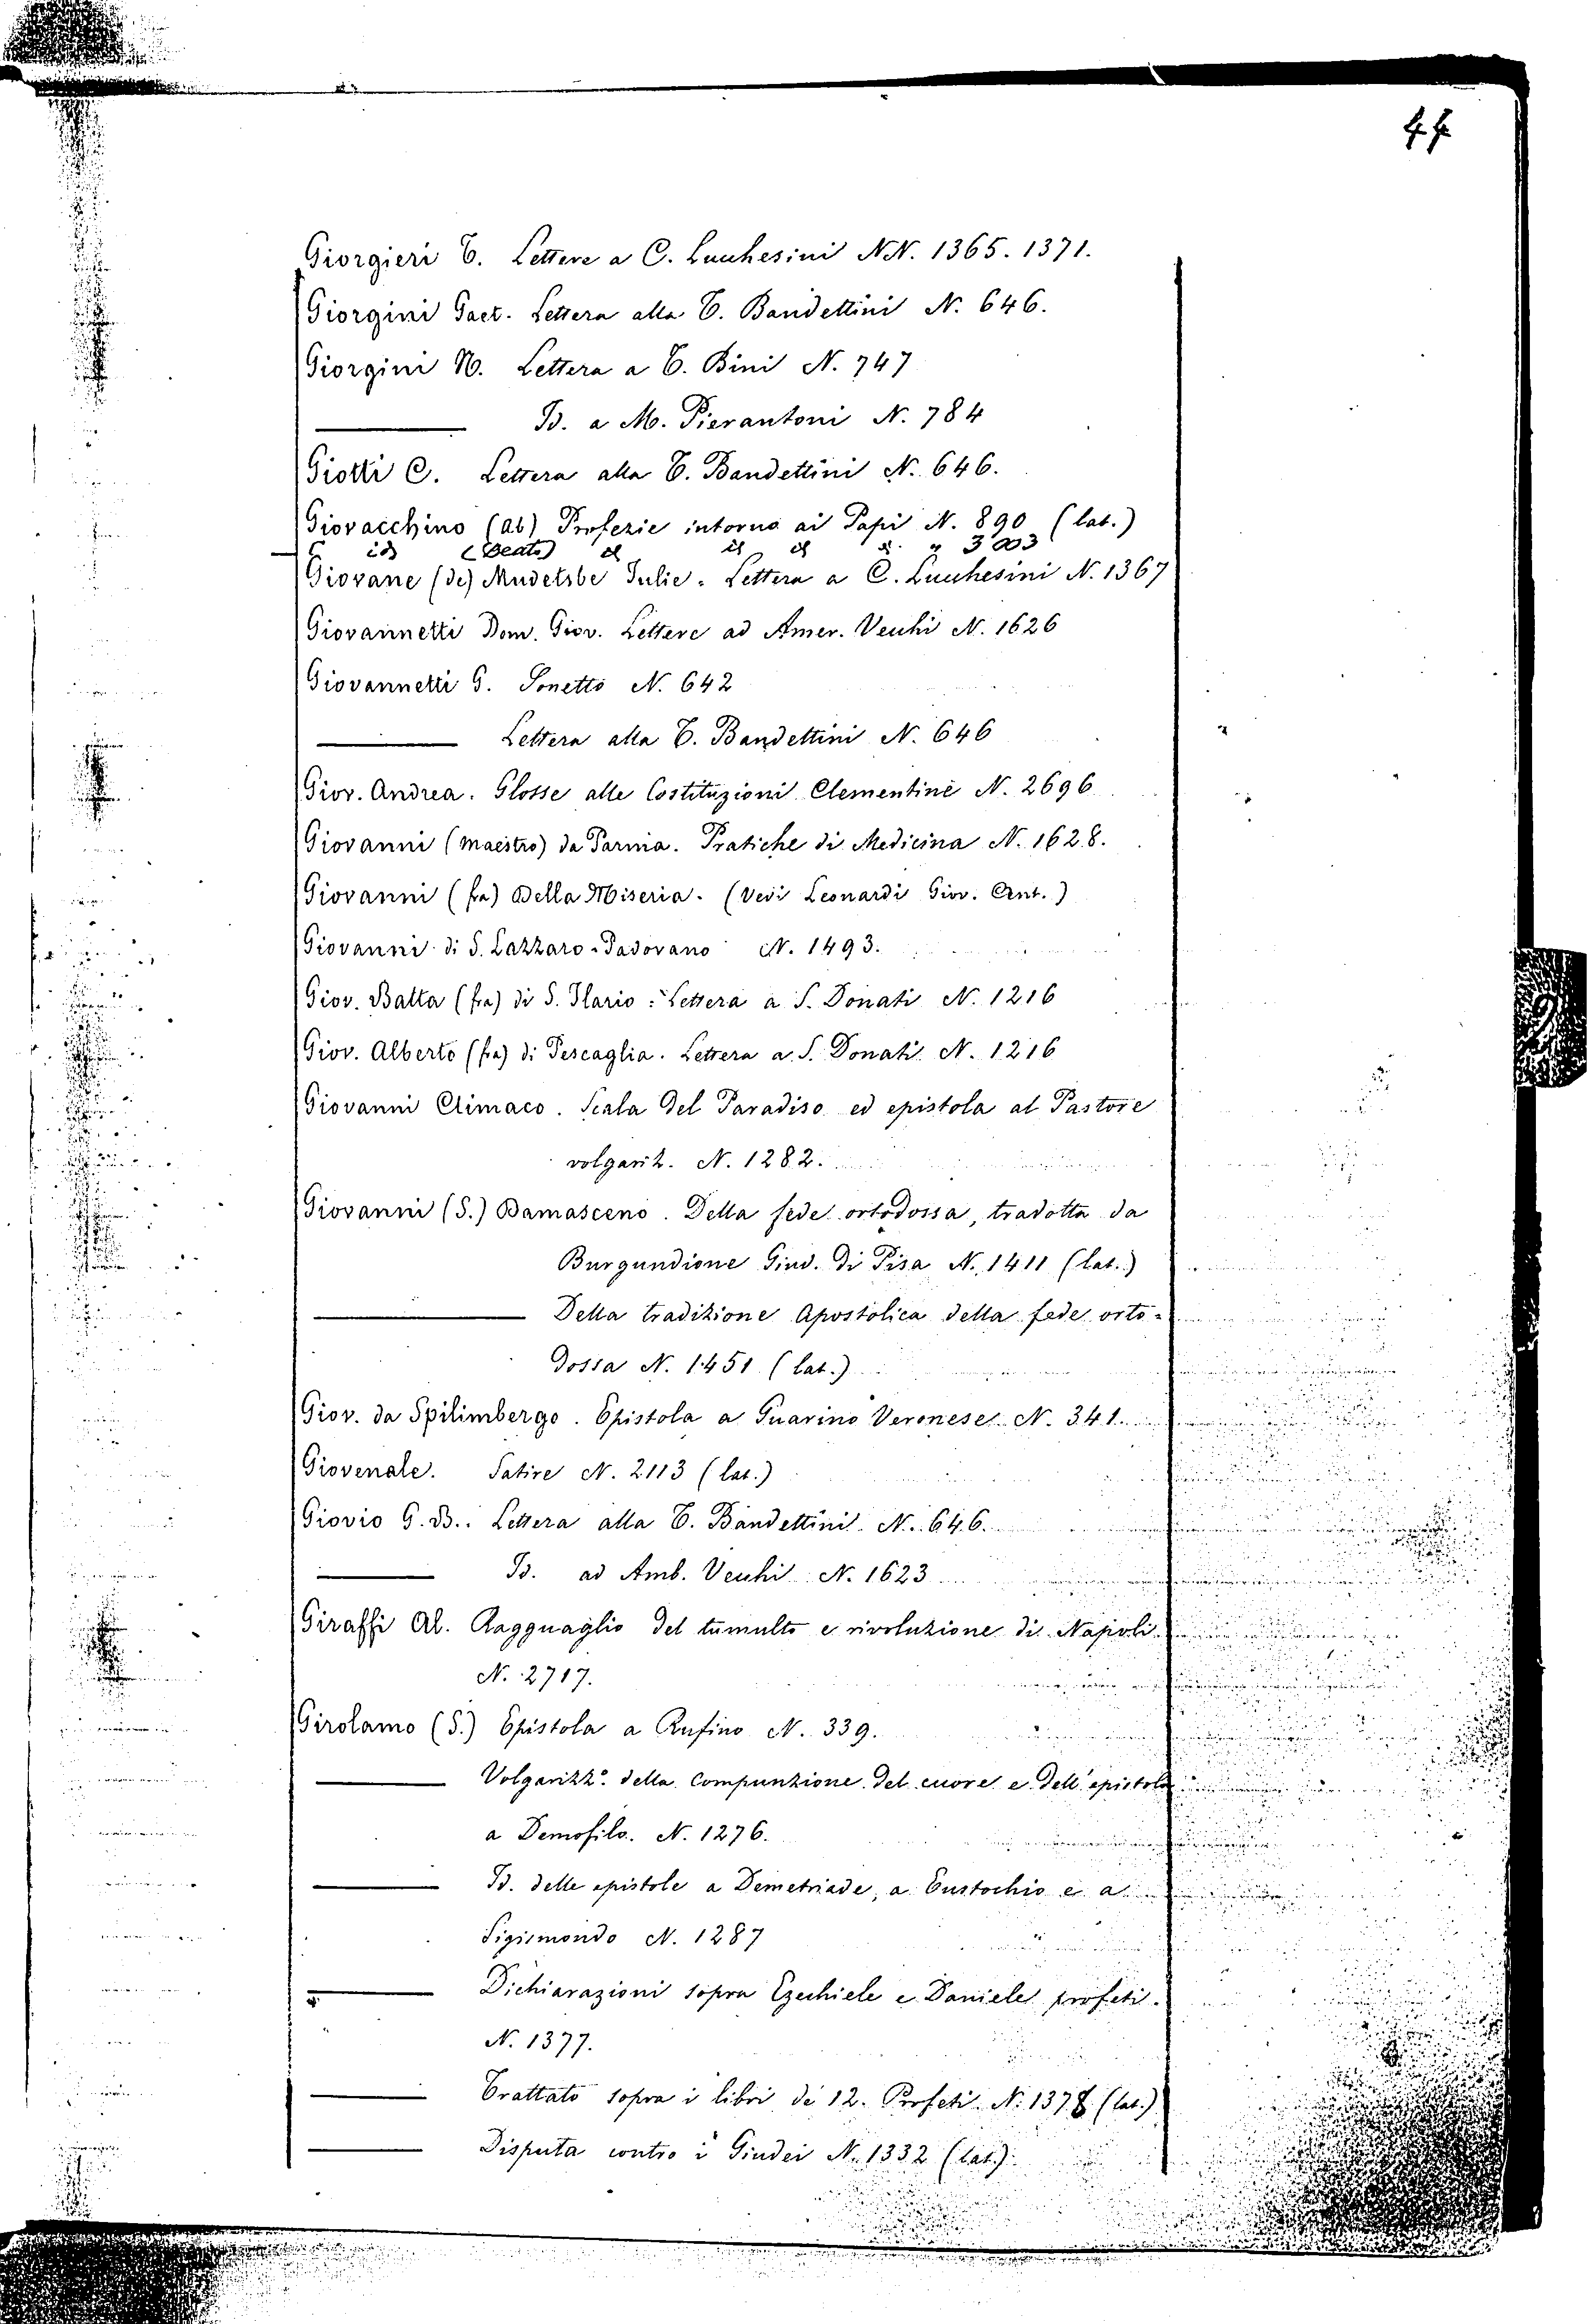 44
Giorgieri T. Lettere a C. Lucchesini NN. 1365. 1371.
Giorgini Gaet. Lettera alla T. Bandettini N. 646.
Giorgini N. Lettera a T. Bini N. 747
Id. a M. Pierantoni N. 784
Giotti C. Lettera alla T. Bandettini N. 646.
Giovacchino (ab) Profezie intorno ai Papi N. 890 (lat.)
id (Beato) id id id N. " 3003
Giovane (de) Mudelsbe Julie. Lettera a C. Lucchesini N. 1367
Giovannetti Dom. Giov. Lettere ad Amer. Vecchi N. 1626
Giovannetti G. Sonetto N. 642
Lettera alla T. Bandettini N. 646
Giov. Andrea. Glosse alle Costituzioni Clementine N. 2696
Giovanni (maestro) da Parma. Pratiche di Medicina N. 1628.
Giovanni (fra) della Miseria. (Vedi Leonardi Giov. Ant.)
Giovanni di S. Lazzaro-Padovano N. 1493.
Giov. Batta (fra) di S. Ilario: Lettera a S. Donati N. 1216
Giov. Alberto (fra) di Pescaglia. Lettera a S. Donati N. 1216
Giovanni Climaco. Scala del Paradiso ed epistola al Pastore
volgariz. N. 1282.
Giovanni (S.) Damasceno. Della fede ortodossa, tradotta da
Burgundione Giud. di Pisa N. 1411 (lat.)
Della tradizione Apostolica della fede orto-
dossa N. 1451 (lat.)
Giov. da Spilimbergo. Epistola a Guarino Veronese N. 341.
Giovenale. Satire N. 2113 (lat.)
Giovio G. B. Lettera alla T. Bandettini N. 646.
Id. ad Amb. Vecchi N. 1623
Giraffi Al. Ragguaglio del tumulto e rivoluzione di Napoli
N. 2717.
Girolamo (S.) Epistola a Rufino N. 339.
Volgarizz.º della compunzione del cuore e dell'epistola
a Demofilo. N. 1276.
Id. delle epistole a Demetriade, a Eustochio e a
Sigismondo N. 1287
Dichiarazioni sopra Ezechiele e Daniele profeti.
N. 1377.
Trattato sopra i libri de 12. Profeti N. 1378 (lat.)
Disputa contro i Giudei N. 1332 (lat.)